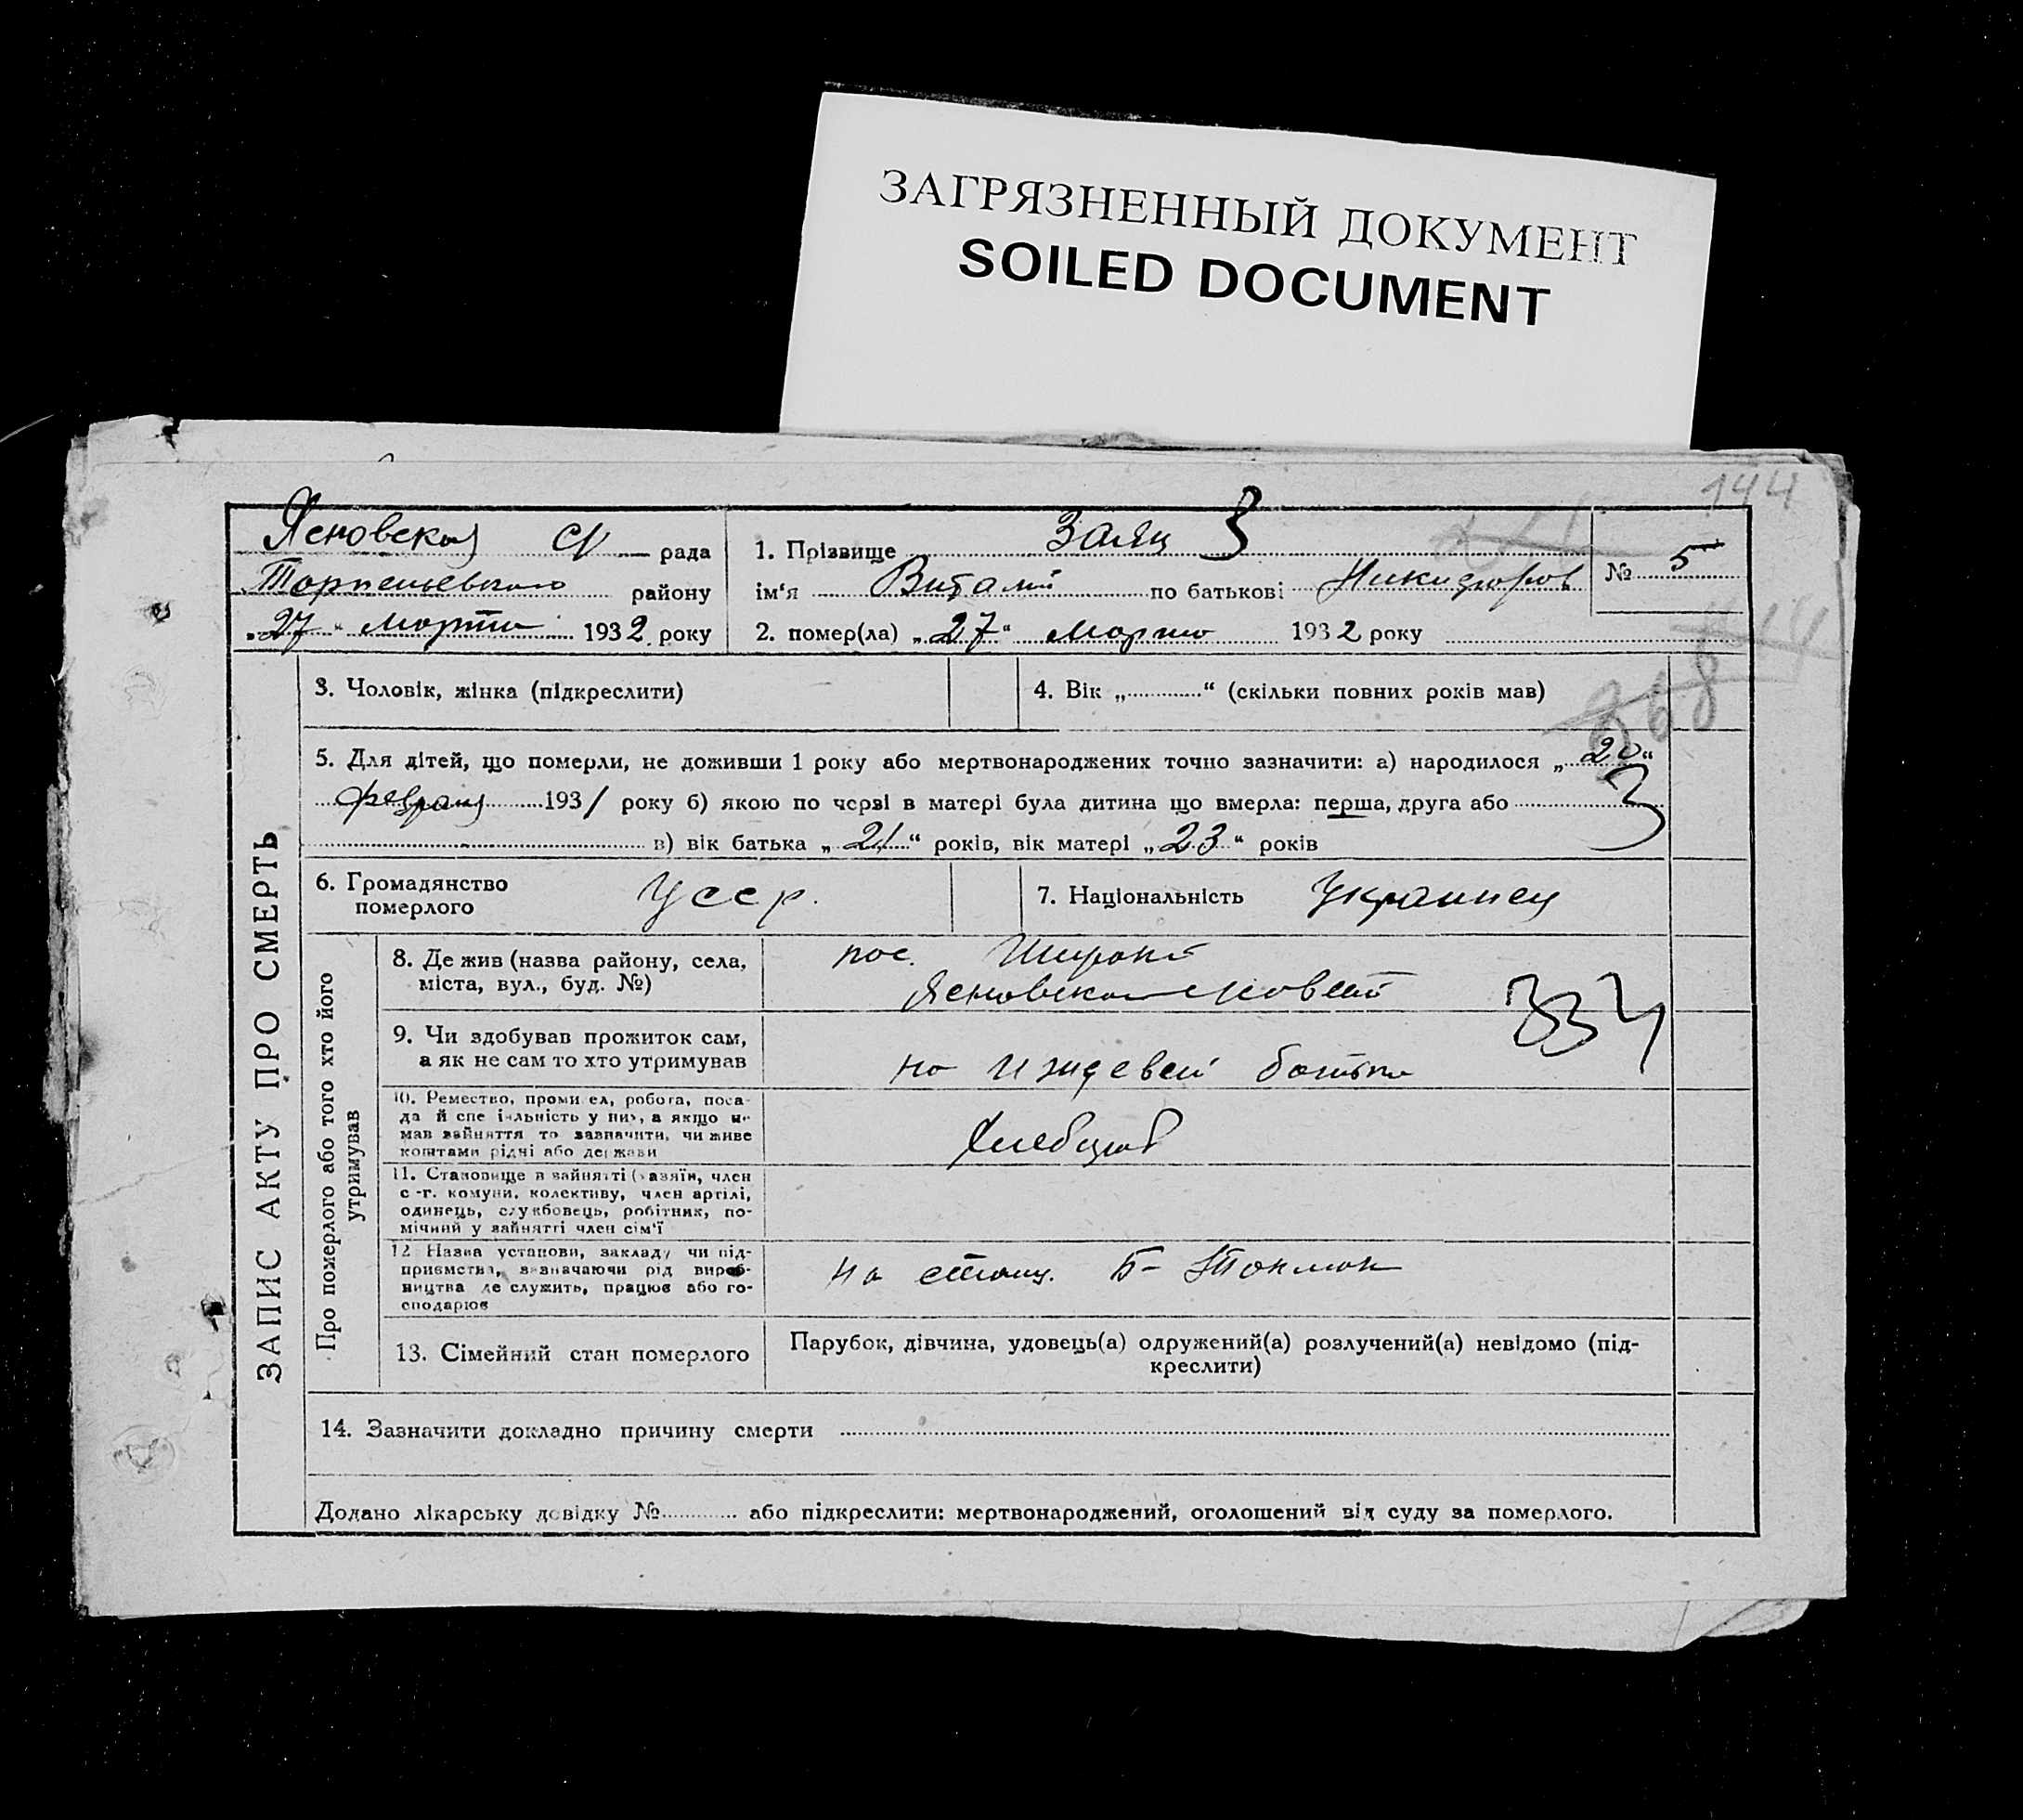 ЗАГРЯЗНЕННЫЙ ДОКУМЕНТ
SOILED DOCUMENT
144
Ясновская С/ рада
району
„27“ марта 1932 року
1. Прізвище Заяц З
ім‘я Виталий по батькові Никифоров
№ 5
2. помер(ла) „27“ марта 1932 року
3. Чоловік, жінка (підкреслити)
4. Вік „ “ (скільки повних років мав)
368
5. Для дітей, що померли, не доживши 1 року або мертвонароджених точно зазначити: а) народилося „20“
февраля 1931 року б) якою по черзі в матері була дитина що вмерла: перша, друга або 3
в) вік батька „21“ років, вік матері „23“ років
6. Громадянство
померлого
УССР.
7. Національність Украинец
ЗАПИС АКТУ ПРО СМЕРТЬ
Про померлого або того хто його
утримував
8. Де жив (назва району, села,
міста, вул., буд. №)
пос. Широкий
334
9. Чи здобував прожиток сам,
а як не сам то хто утримував
на батька
10. Ремество, проми ел, робота, поса-
да й спе і льність у них, а якщо не
мав зайняття то зазначити, чи живе
коштами рідні або держави
Хлебороб
11. Становище в зайнятті (хазяїн, член
с.-г. комуни, колективу, член артілі,
одинець, службовець, робітник, по-
мічний у зайнятті член сім‘ї
12 Назва установи, закладу чи під-
приємства, зазначаючи рід вироб-
ництва де служить, працює або го-
сподарює
на станц. Б- Токмак
13. Сімейний стан померлого
Парубок, дівчина, удовець(а) одружений(а) розлучений(а) невідомо (під-
креслити)
14. Зазначити докладно причину смерти
Додано лікарську довідку № або підкреслити: мертвонароджений, оголошений від суду за померлого.